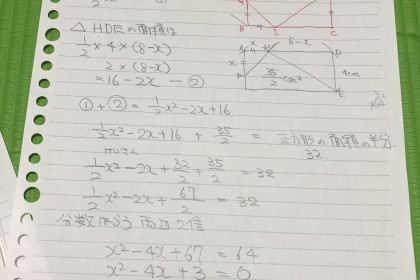 B
I
C
△HDEの面積は
1/2 × 4 × (8-x)
2 × (8-x)
= 16 - 2x ー ②
8-x
x
H
D
x
35/2 cm²
4cm
E
① + ② = 1/2 x² - 2x + 16
1/2 x² - 2x + 16 + 35/2 = 正方形の面積の半分
32
1/2 x² - 2x + 32/2 + 35/2 = 32
1/2 x² - 2x + 67/2 = 32
分数はらう 両辺2倍
x² - 4x + 67 = 64
x² - 4x + 3 = 0